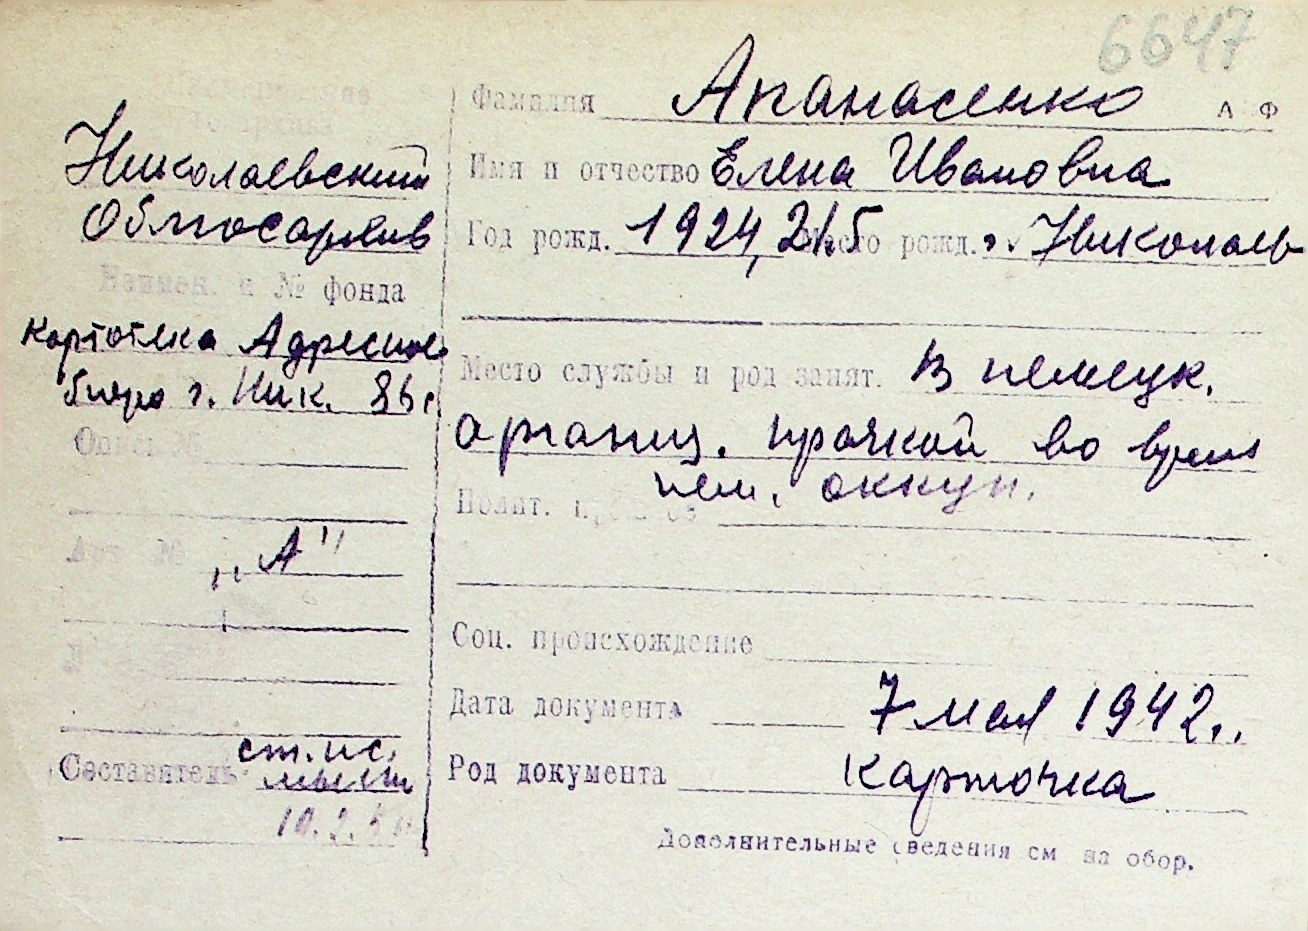 6647
Фамилия Апанасенко А Ф
Николаевский
Облгосархив
Имя и отчество Елена Ивановна
Год рожд. 1924, Место рожд. Николаев
Наимен. и № фонда
Картотека Адресное
бюро г. Ник.
Место службы и род занят. В немецк.
организ. прачкой во время
нем. оккуп.
Опись №
Полит.
Арх №
„А"
Соц. происхождение
Дата документа 7 мая 1942г.
Составитель
Род документа карточка
10.2.
Дополнительные сведения см на обор.